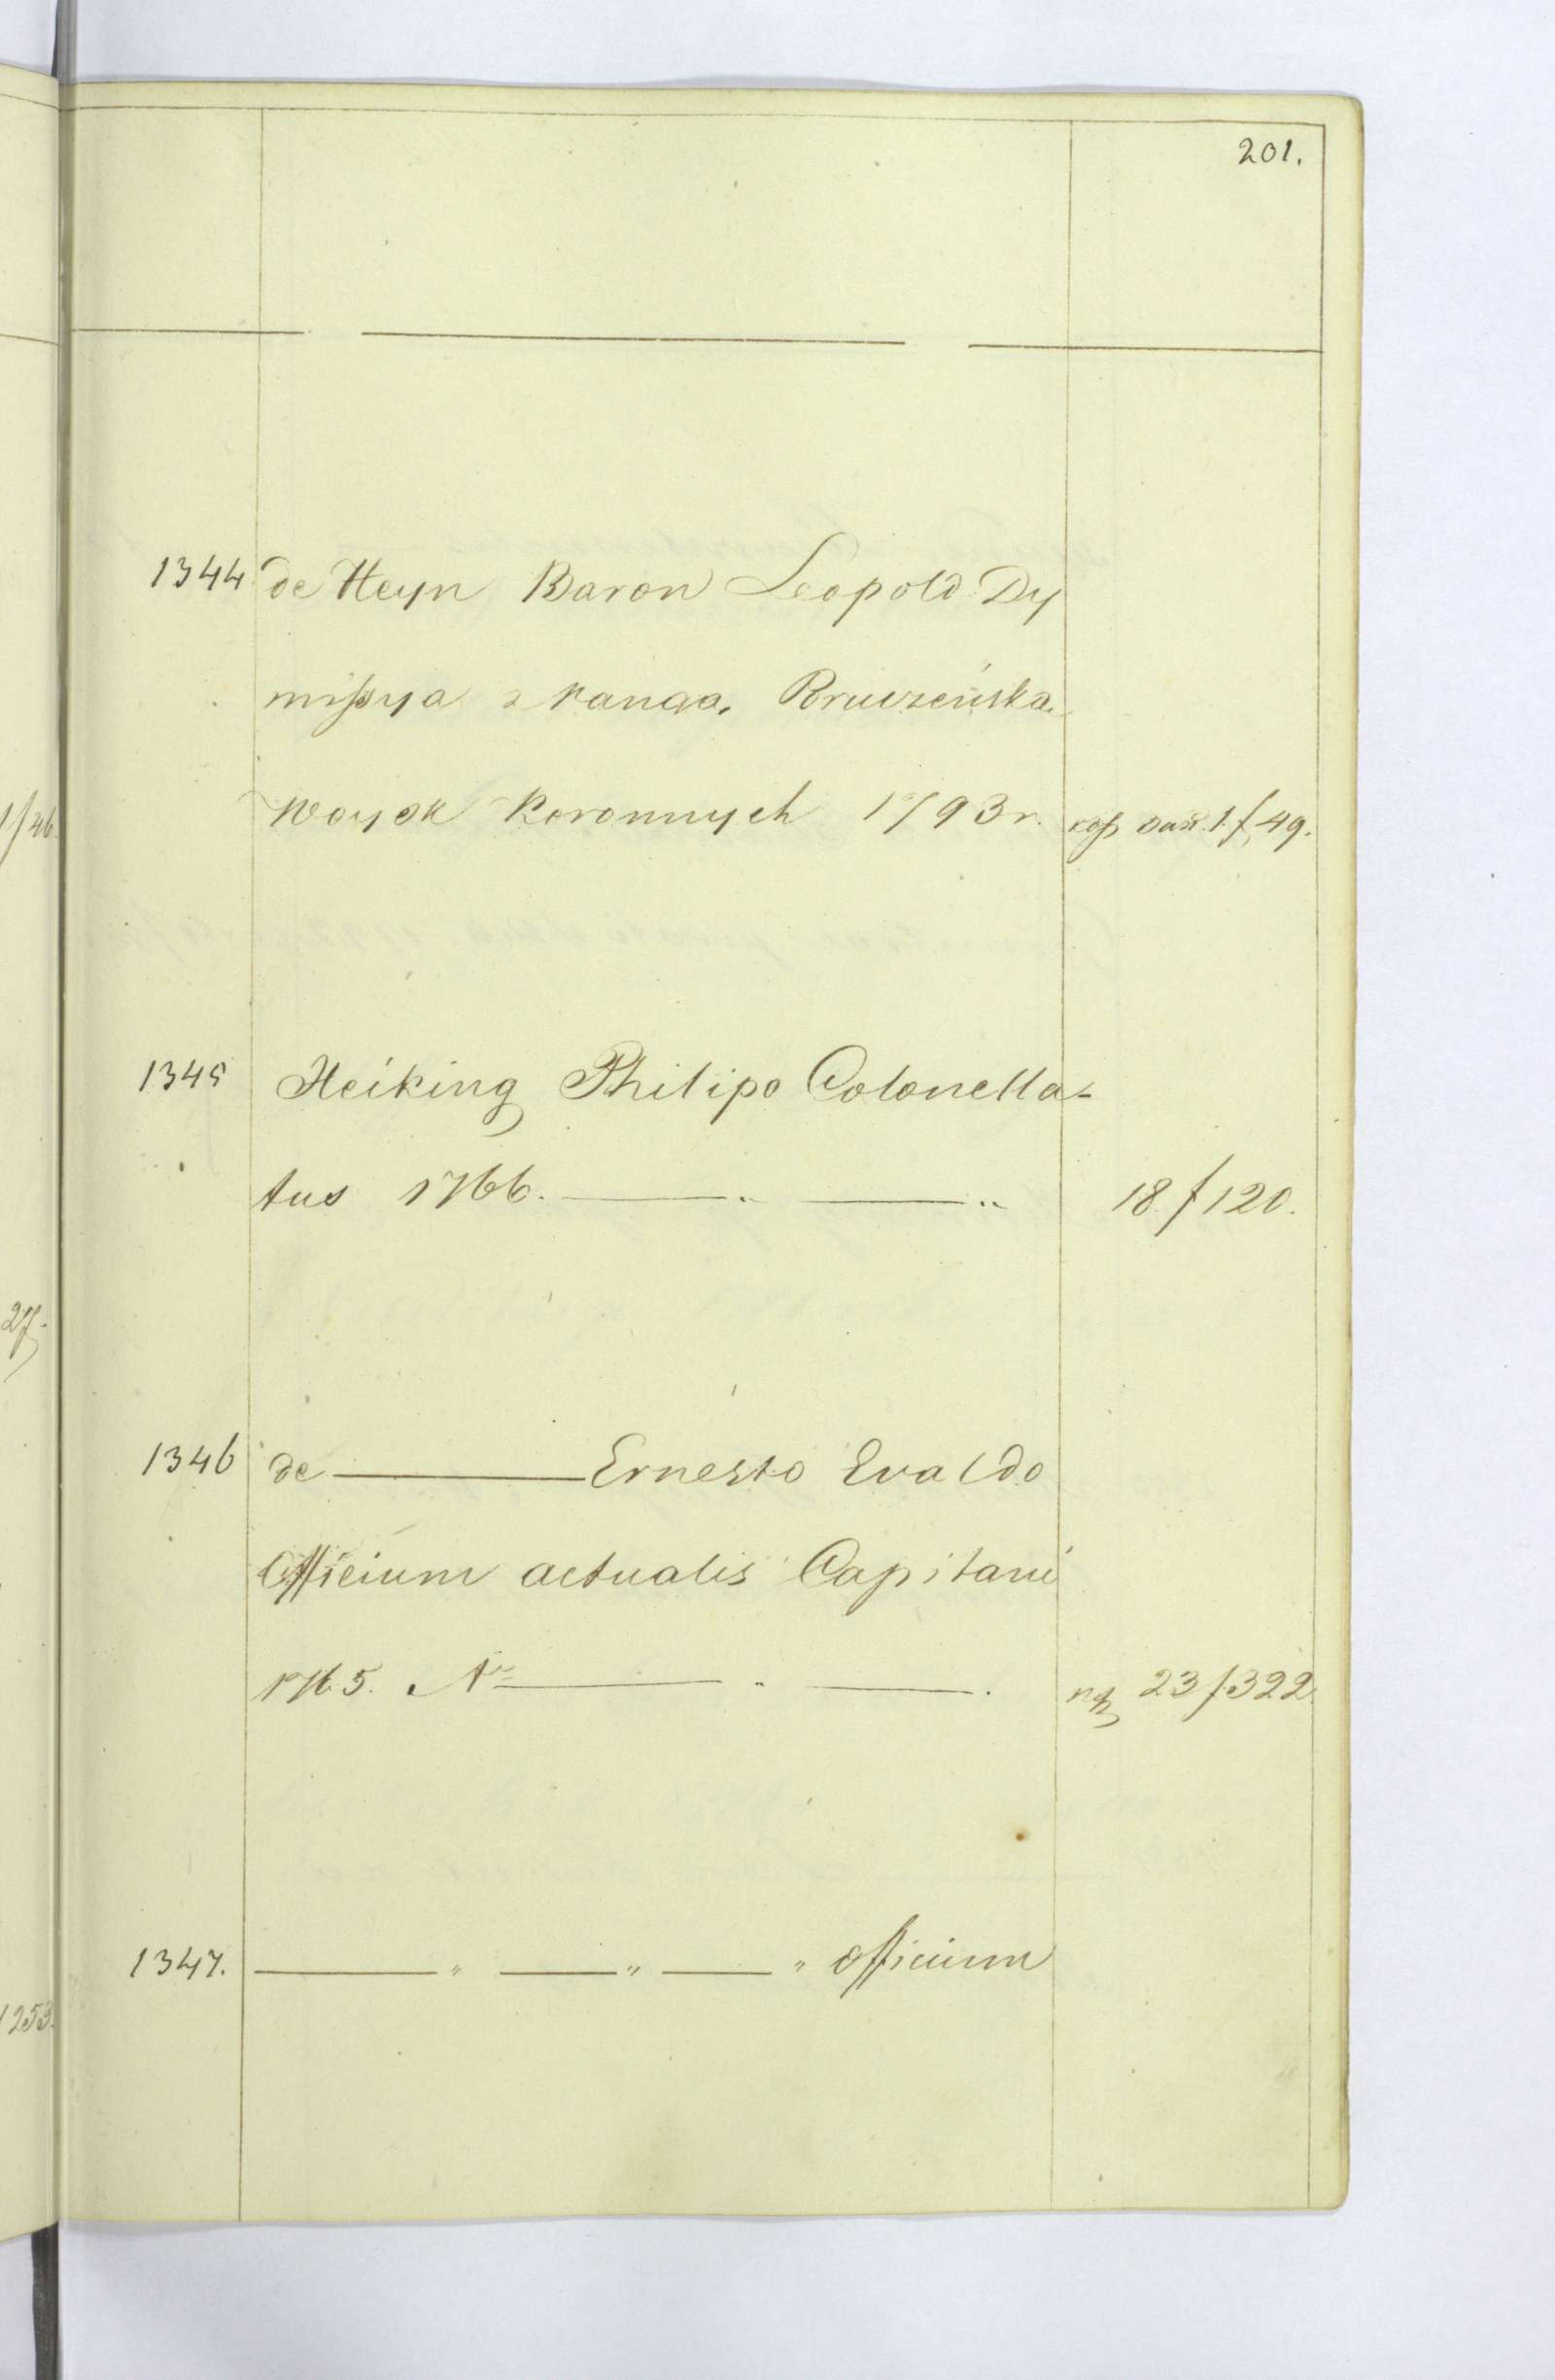 201.
1344 de Heyn Baron Leopold Dy
missya z rangą
woysk Koronnych 1793 r. 1 f 49.
1345 Heiking Philipo Colonella-
tus 1766. 18 f 120.
1346 de Ernesto Evaldo
Officium actualis Capitanei
1765. 23 f 322
1347. " " " Officium